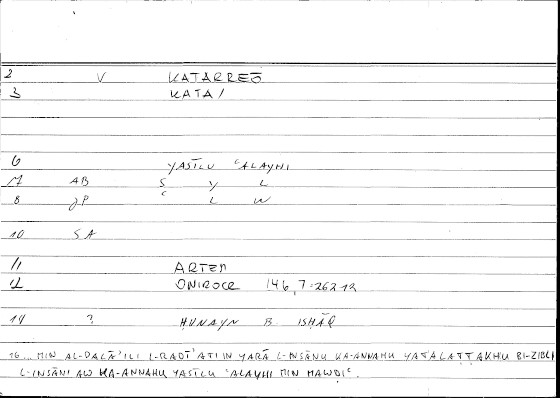 2 V KATARREŌ
3 KATA/
6 YASĪLU ʿALAYHI
7 AB S Y L
8 JP ʿ L W
10 SA
11 ARTEM
12 ONIROCR 146,7=262,12
14 ? HUNAYN B ISHĀQ
16 ... MIN AL-DALĀʾILI L-RADĪʾATI IN YARĀ L-INSĀNU KA-ANNAHU YATALAṬṬAKHU BI-ZIBLI
L-INSĀNI AW KA-ANNAHU YASĪLU ʿALAYHI MIN MAWḌIʿ.